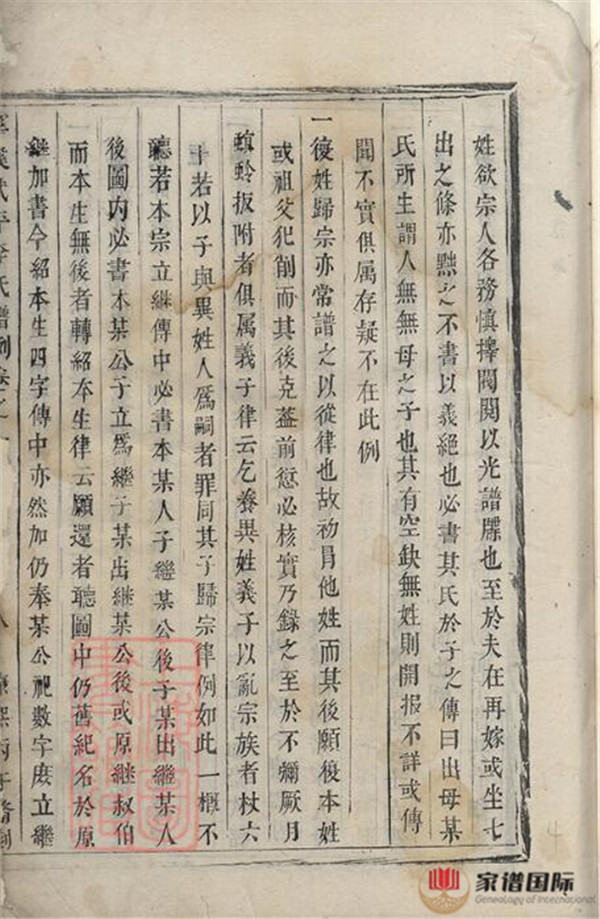 姓欲宗人各務慎擇閥閱以光譜牒也至於夫在再嫁或坐七
出之條亦黜之不書以義絕也必書其氏於子之傳曰出母某
氏所生謂人無無母之子也其有空缺無姓則開報不詳或傳
聞不實俱属存疑不在此例
一復姓歸宗亦常譜之以從律也故初冒他姓而其後願復本姓
或祖父犯削而其後克蓋前愆必核實乃錄之至於不彌厥月
螟蛉扳附者俱属義子律云乞養異姓義子以亂宗族者杖六
十若以子與異姓人爲嗣者罪同其子歸宗律例如此一概不
聽若本宗立繼傳中必書本某人子繼某公後子某出繼某人
後圖内必書本某公子立爲繼子某出繼某公後或原繼叔伯
而本生無後者轉紹本生律云願還者聽圖中仍舊紀名於原
繼加書今紹本生四字傳中亦然加仍奉某公祀數字庶立繼
李氏譜例卷之
家谱国际
Genealogy of International